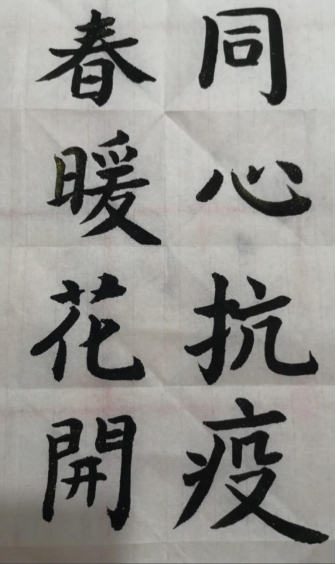 同心抗疫
春暖花開